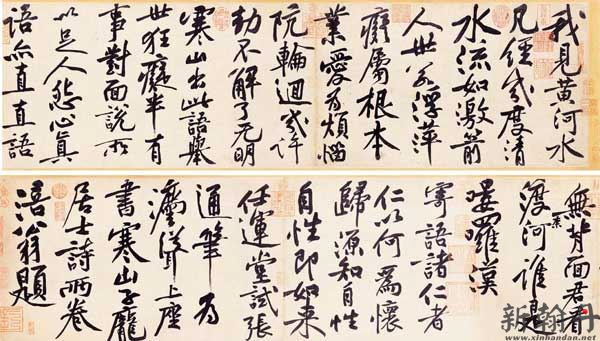 我見黃河水
凡經幾度清
水流如激箭
人世若浮萍
癡屬根本
業愛為煩惱
阬輪迴幾許
劫不解了无明
寒山出此語舉
世狂癡半有
事對面說所
以足人怨心真
語亦直直語
無背面君看
渡奈河誰是
嘍羅漢
寄語諸仁者
仁以何為懷
歸源知自性
自性即如來
任運堂試張
通筆為
灋聳上座
書寒山子龐
居士詩兩卷
涪翁題
新翰丹
www.xinhandan.net